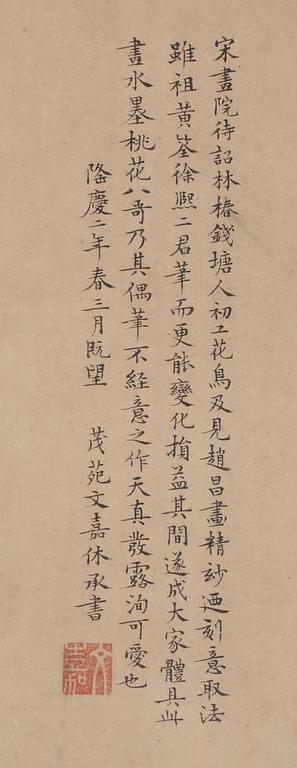 宋畫院待詔林椿錢塘人初工花鳥及見趙昌畫精妙迺刻意取法
雖祖黃筌徐熙二君筆而更能變化損益其間遂成大家體具此
畫水墨桃花八哥乃其偶筆不經意之作天真發露洵可愛也
隆慶二年春三月既望 茂苑文嘉休承書
文嘉